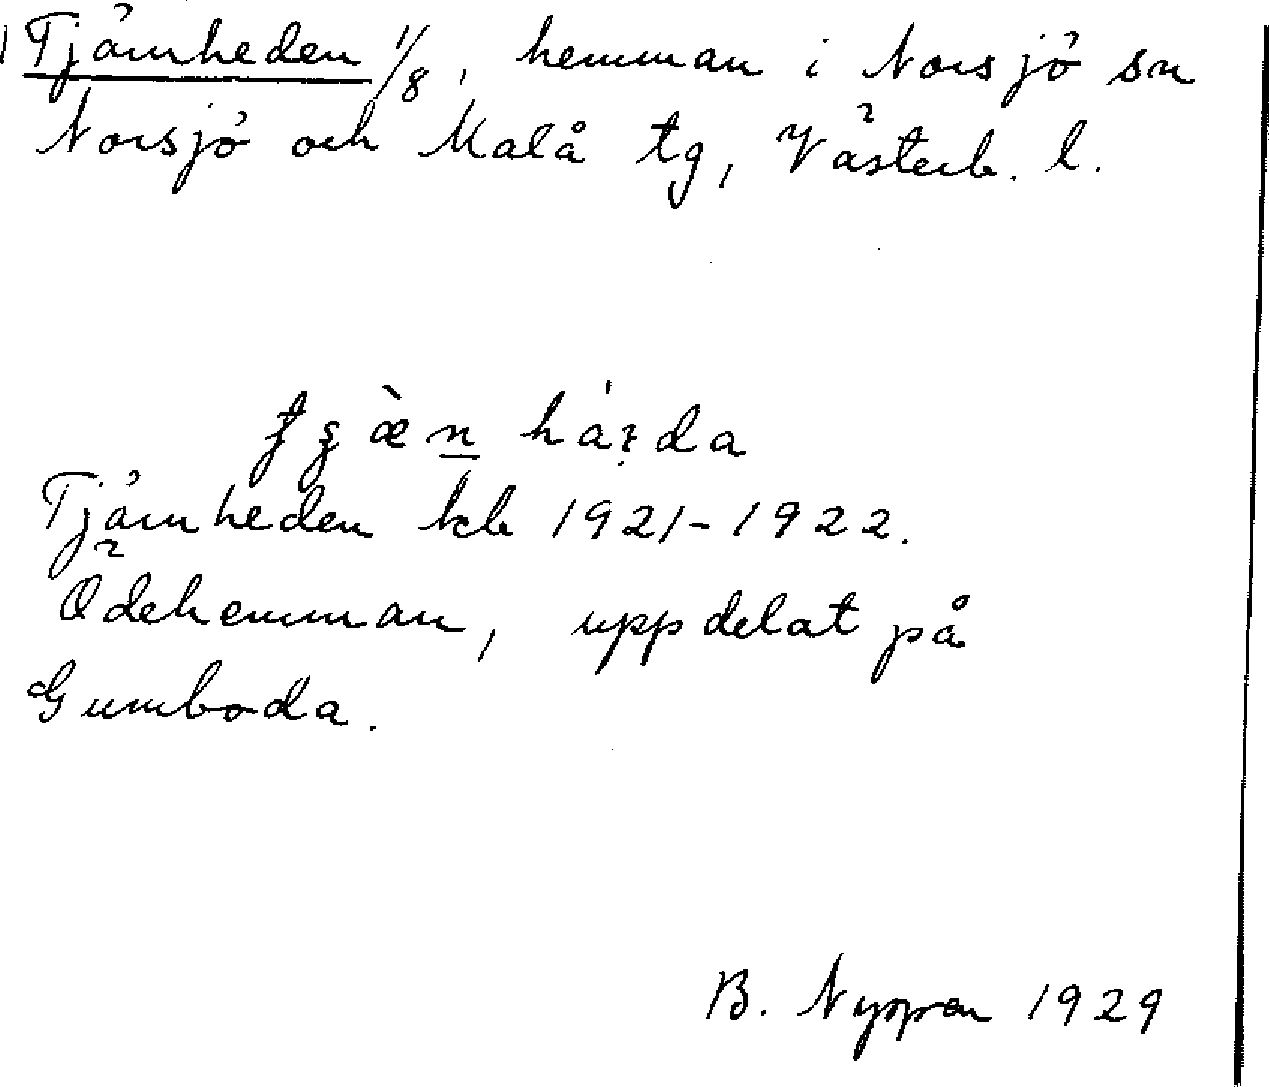 Tjärnheden 1/8, hemman i Norsjö sn
Norsjö och Malå tg, Västerb. l.
hárda
Tjärnheden kb 1921-1922.
Ödehemman, uppdelat på
Gumboda.
B. Nyman 1929